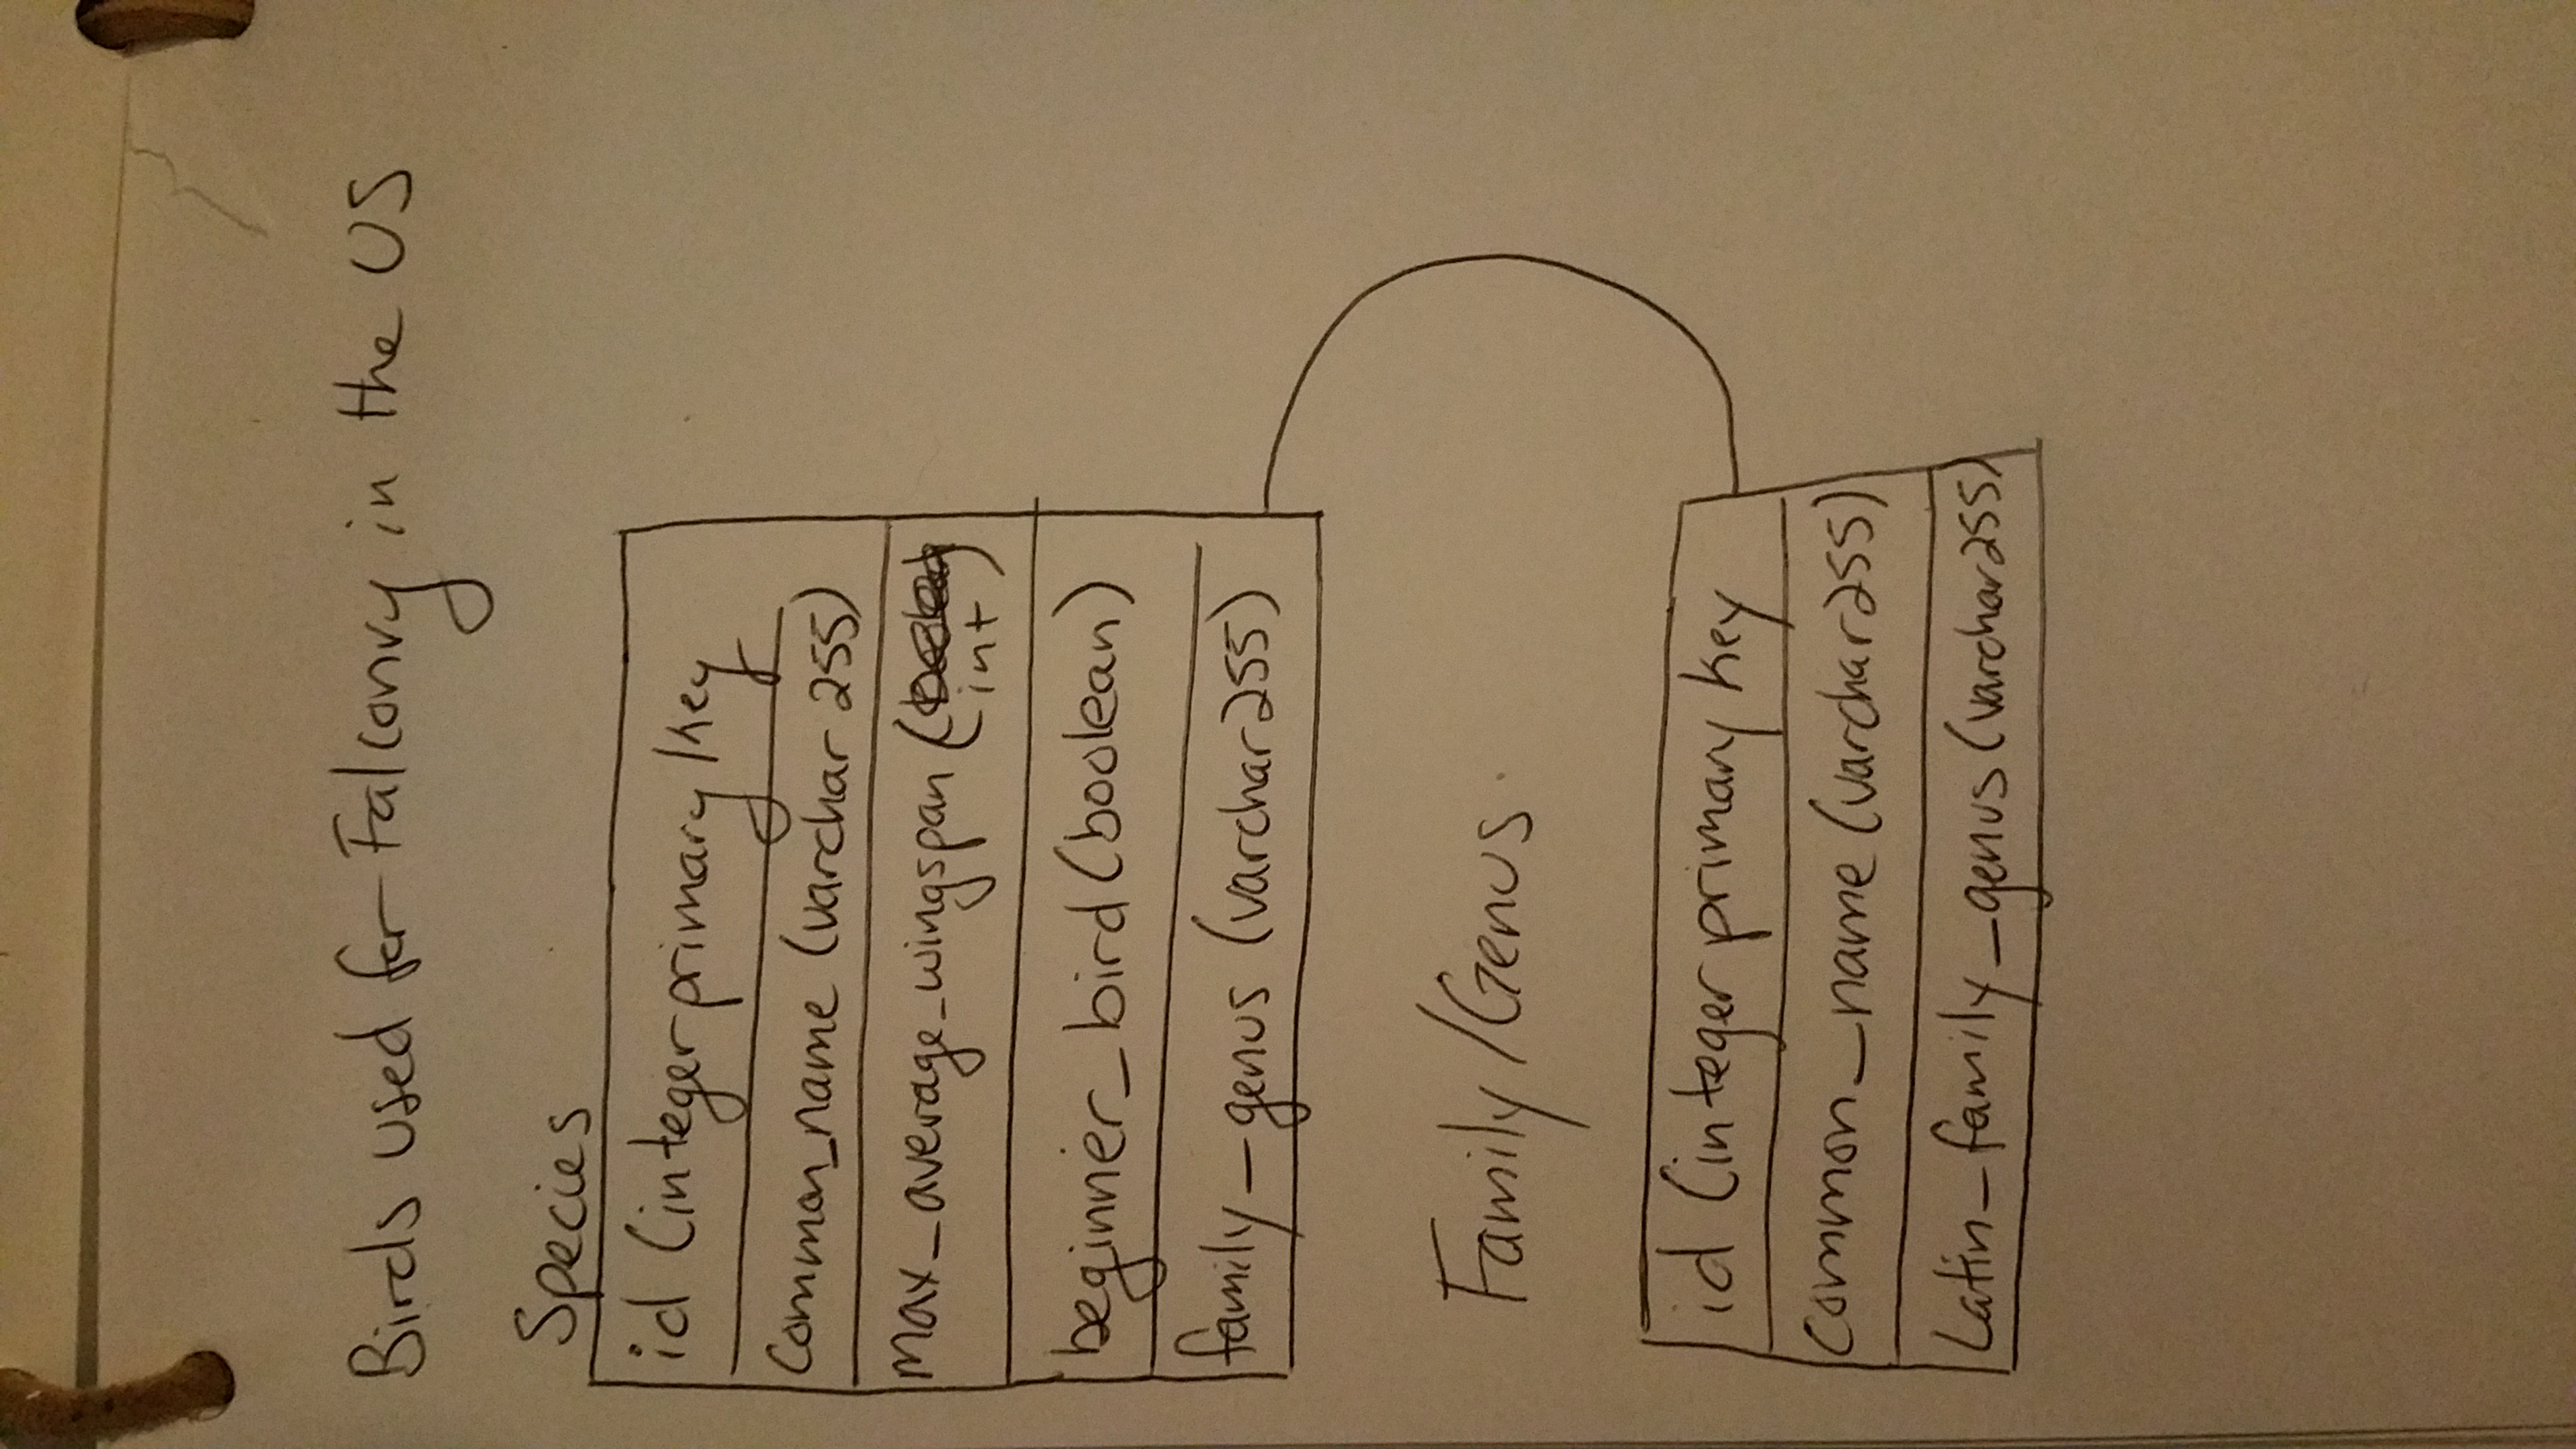 Birds used for Falconry in the US
Species
id (integer primary key
common_name (varchar 255)
max_average_wingspan (
int)
beginner_bird (boolean)
family_genus (varchar255)
Family/Genus
id (integer primary key
common_name (varchar255)
Latin_family_genus (varchar255)